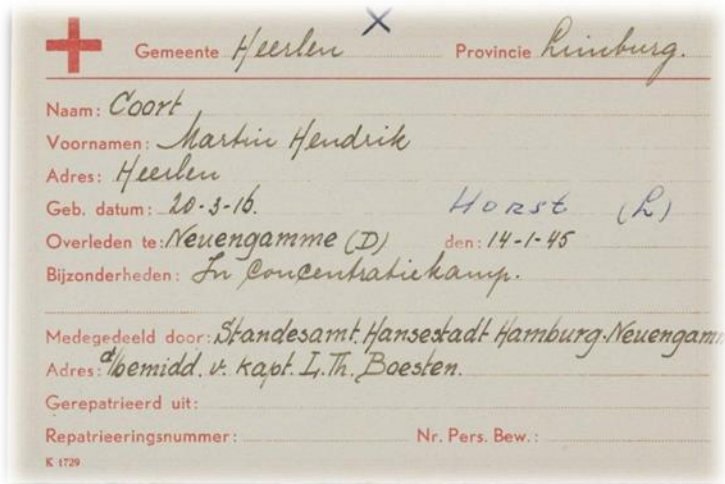 Gemeente Heerlen Provincie Limburg.
Naam: Coort
Voornamen: Martin Hendrik
Adres: Heerlen
Geb. datum: 20-3-16. Horst (L)
Overleden te: Neuengamme (D) den: 14-1-45
Bijzonderheden: In Concentratiekamp.
Medegedeeld door: Standesamt Hansestadt Hamburg-Neuengamm
Adres: d/bemidd. v. kapt. L. Th. Boesten.
Gerepatrieerd uit:
Repatrieeringsnummer: Nr. Pers. Bew.:
K 1729